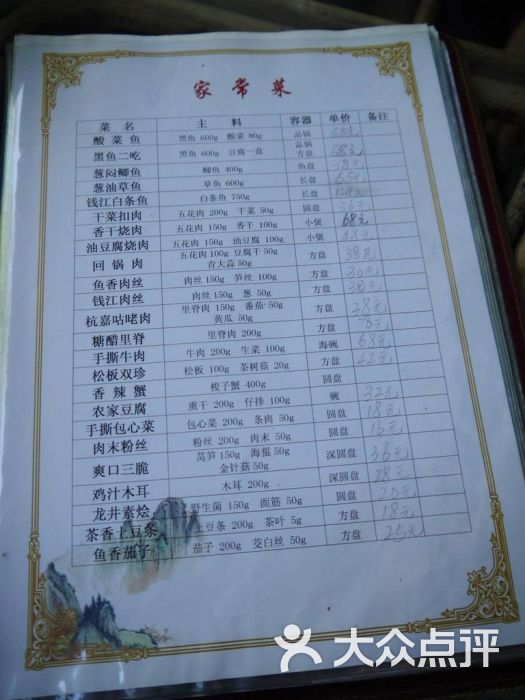 家常菜
菜名 主料 容器 单价 备注
酸菜鱼 黑鱼 600g 酸菜 80g 品锅
黑鱼二吃 黑鱼 600g 豆腐一盒 品锅 方盘 68元
葱闷鲫鱼 鲫鱼 400g 鱼盘
葱油草鱼 草鱼 600g 长盘
钱江白条鱼 白条鱼 750g 长盘
干菜扣肉 五花肉 200g 干菜 50g 圆盘
香干烧肉 五花肉 150g 香干 100g 小煲 68元
油豆腐烧肉 五花肉 150g 油豆腐 100g 小煲
回锅肉 五花肉 100g 豆腐干 50g 青大蒜 50g 方盘 38元
鱼香肉丝 肉丝 150g 笋丝 100g 方盘 30元
钱江肉丝 肉丝 150g 葱 50g 方盘 38元
杭嘉咕咾肉 里脊肉 150g 番茄 50g 黄瓜 50g 方盘 38元
糖醋里脊 里脊肉 200g 方盘
手撕牛肉 牛肉 200g 生菜 100g 海碗 68元
松板双珍 松板 100g 茶树菇 20g 方盘 42元
香辣蟹 梭子蟹 400g 圆盘
农家豆腐 熏干 200g 仔排 100g 碗 32元
手撕包心菜 包心菜 200g 条肉 50g 圆盘 18元
肉末粉丝 粉丝 200g 肉末 50g 圆盘 16元
爽口三脆 莴笋 150g 海蜇 50g 金针菇 50g 深圆盘 36元
鸡汁木耳 木耳 200g 深圆盘 28元
龙井素烩 野生菌 150g 面筋 50g 圆盘 20元
茶香土豆条 土豆条 200g 茶叶 5g 方盘 18元
鱼香茄子 茄子 200g 茭白丝 50g 方盘 25元
大众点评